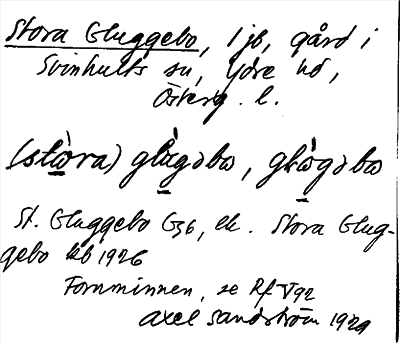 Stora Gluggebo, 1 jb, gård i
Svinhults sn, Ydre hd,
Österg. l.
(stòra) glùgəbω, glωgəbω
St. Gluggebo G36, ek. Stora Glug-
gebo kb 1926
Fornminnen, se Rf V92
Axel Sandström 1929